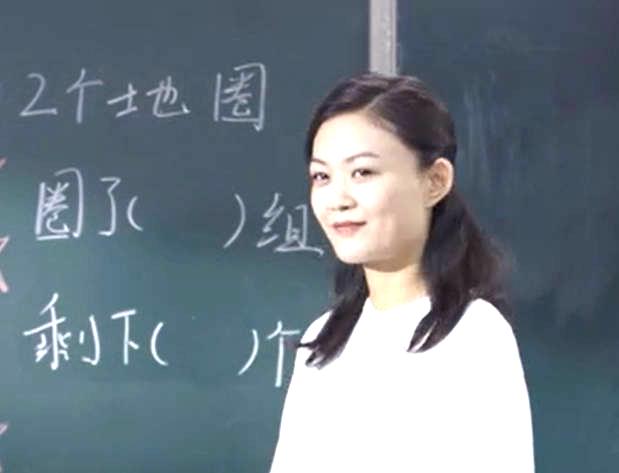 2个土地圈
圈了(  )组
剩下(  )个